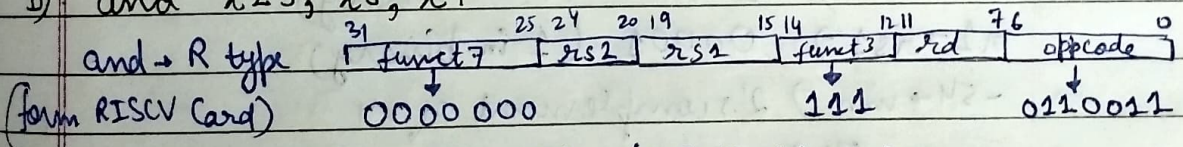 and
31 25 24 20 19 15 14 12 11 7 6 0
and → R type funct7 rs2 rs1 funct3 rd oppcode
(form RISCV Card) 0000000 111 0110011